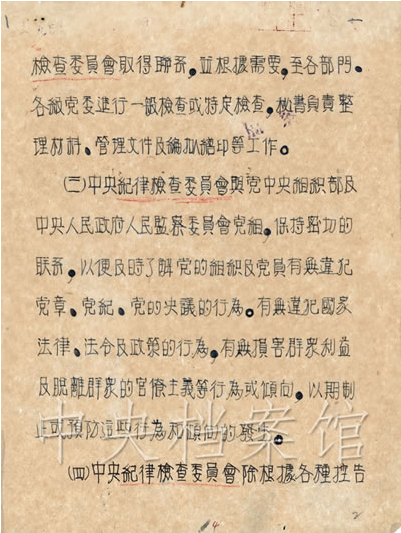 檢查委員會取得聯系，並根據需要，至各部門、
各級党委進行一般檢查或特定檢查。秘書負責整
理材料、管理文件及編拟繕印等工作。
(三)中央紀律檢查委員會與党中央組織部及
中央人民政府人民監察委員會党組，保持密切的
联系，以便及時了解党的組織及党員有無違犯
党章、党紀、党的决議的行為。有無違犯國家
法律、法令及政策的行為，有無損害群眾利益
及脫離群眾的官僚主義等行為或傾向，以期制
止或預防這些行為和傾向的發生。
中央档案馆
(四)中央紀律檢查委員會除根據各種控告
4
2